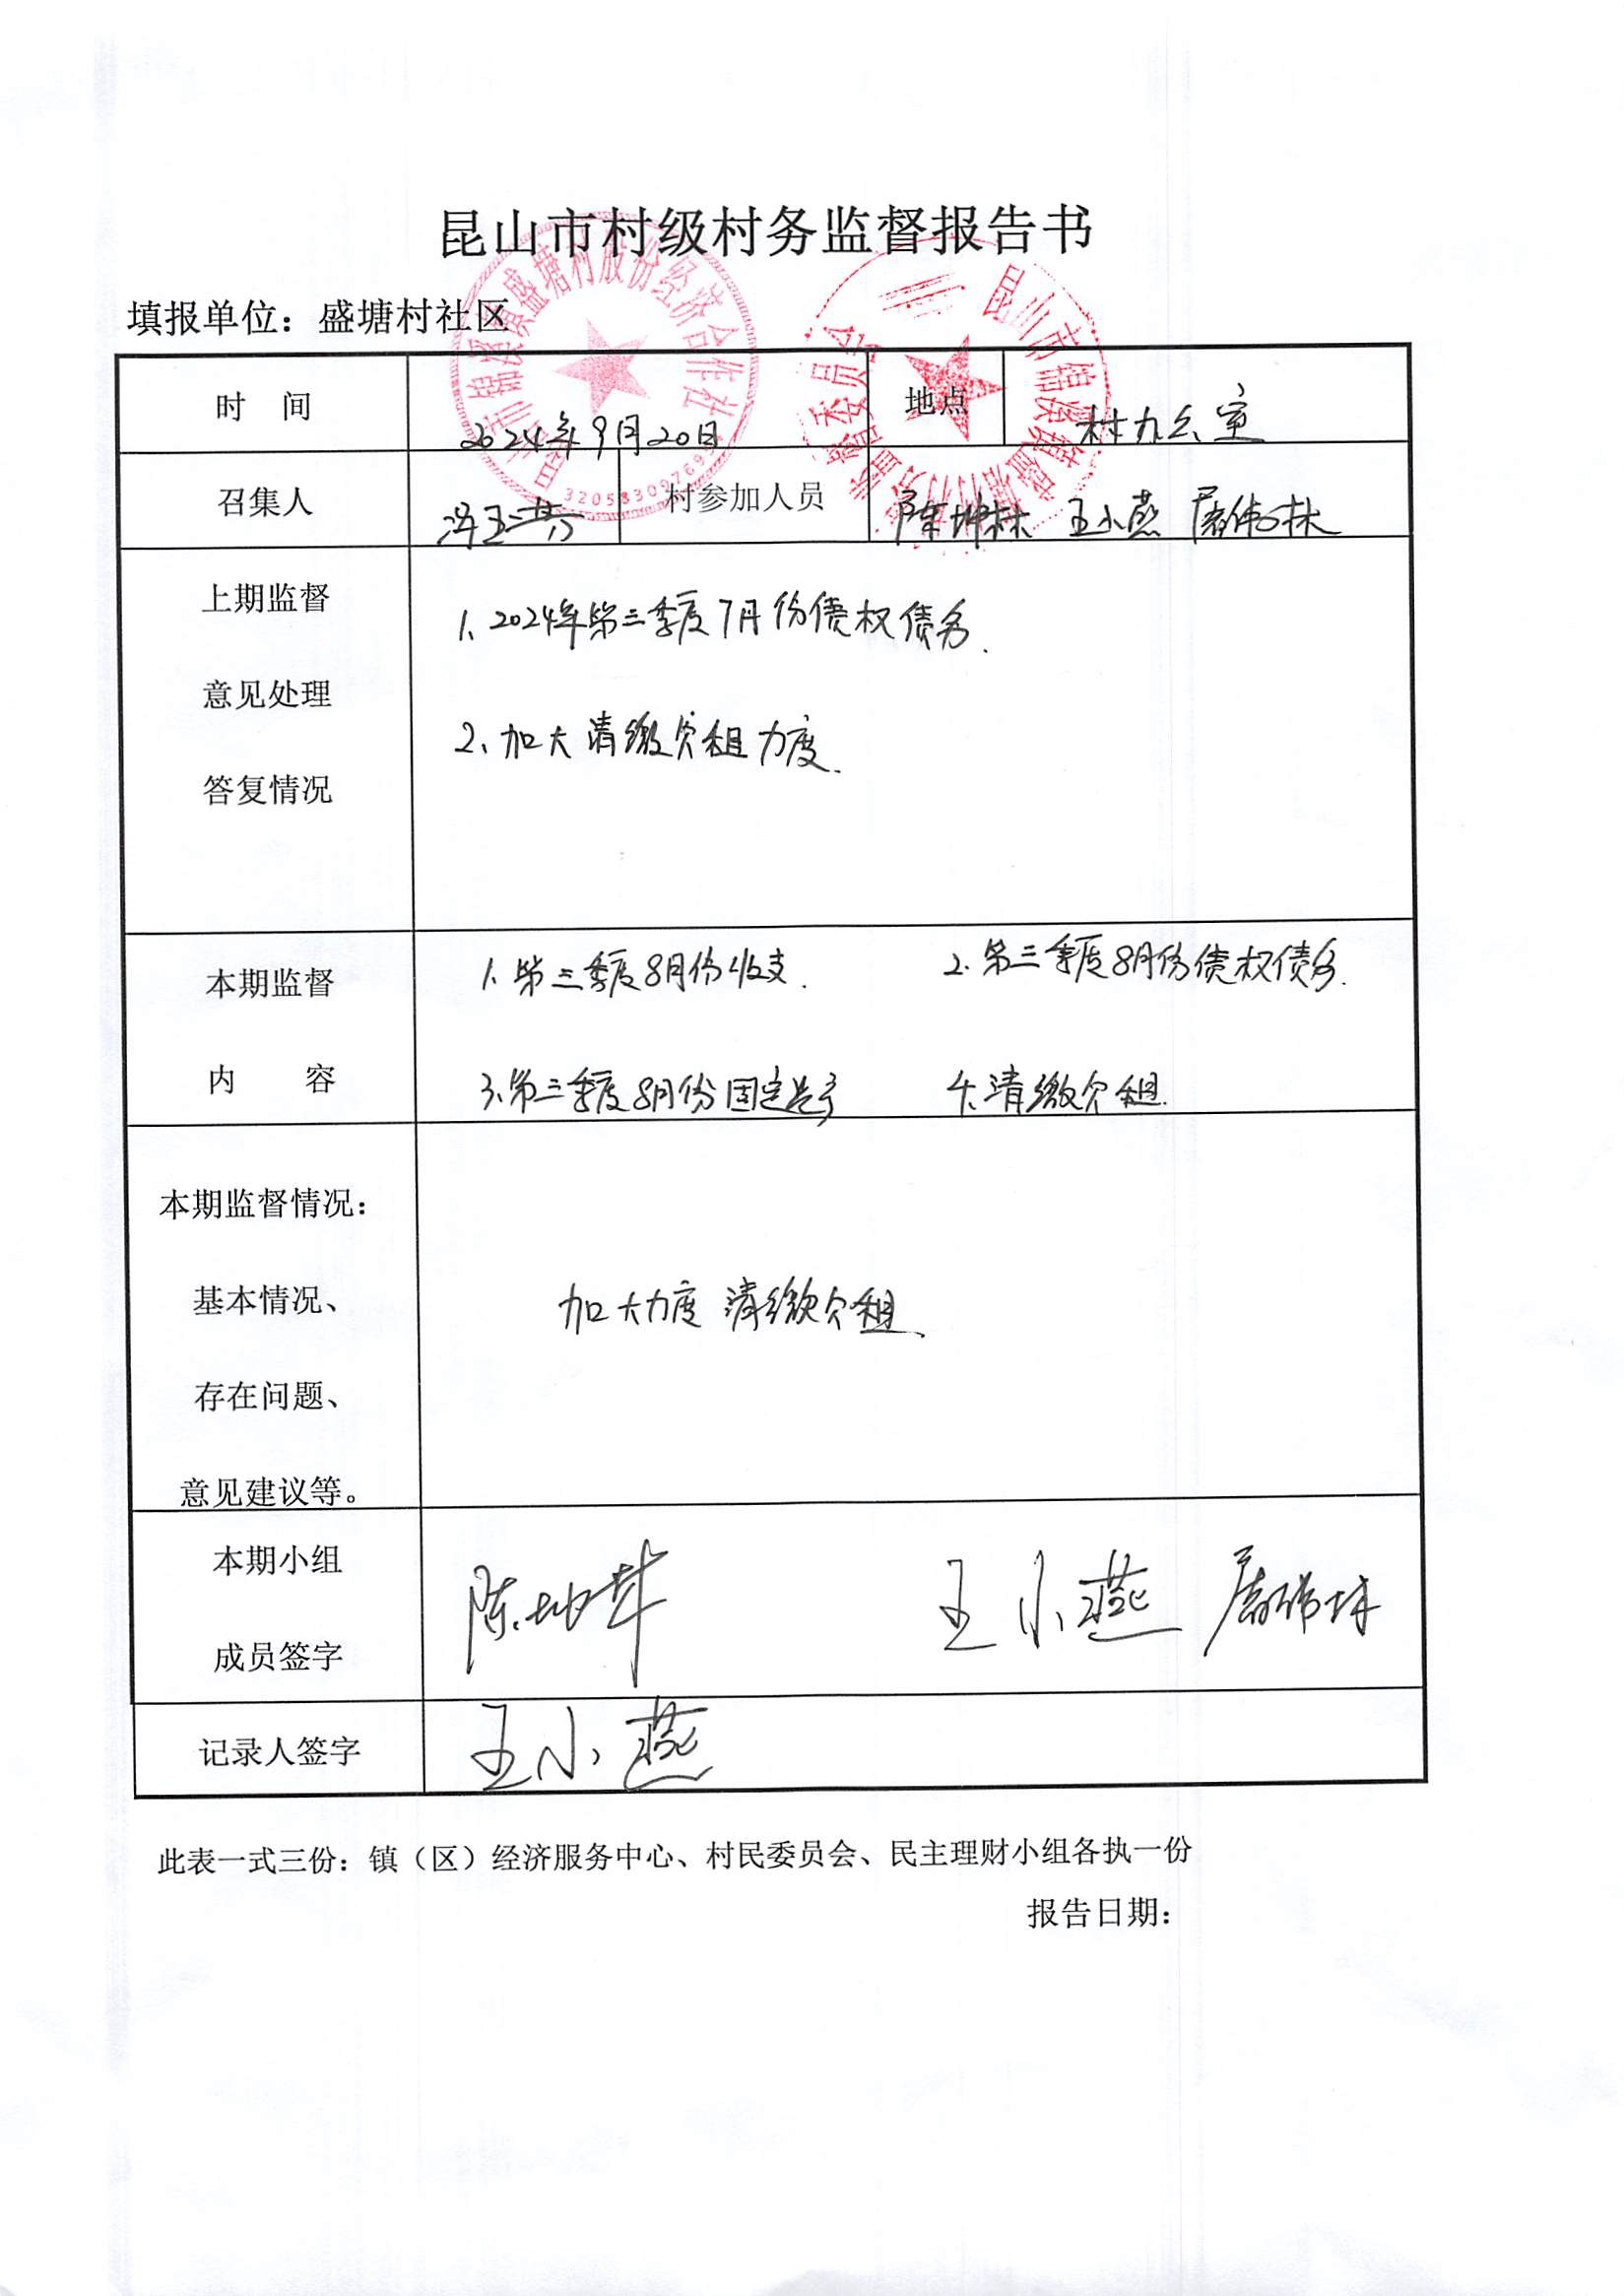 昆山市村级村务监督报告书
填报单位：盛塘村社区
时 间
2024年9月20日
地点
村办公室
召集人
冯玉芳
村参加人员
陈坤林 王小燕 屠伟林
上期监督
意见处理
答复情况
1、2024年第三季度7月份债权债务.
2、加大清缴欠租力度.
本期监督
内 容
1、第三季度8月份收支.
2、第三季度8月份债权债务.
3、第三季度8月份固定
4、清缴欠租.
本期监督情况：
基本情况、
存在问题、
意见建议等。
加大力度清缴欠租.
本期小组
成员签字
王小燕
记录人签字
王小燕
此表一式三份：镇（区）经济服务中心、村民委员会、民主理财小组各执一份
报告日期：
市锦溪镇盛塘村股份经济合作社
昆山市锦溪镇盛塘村村务监督委员会